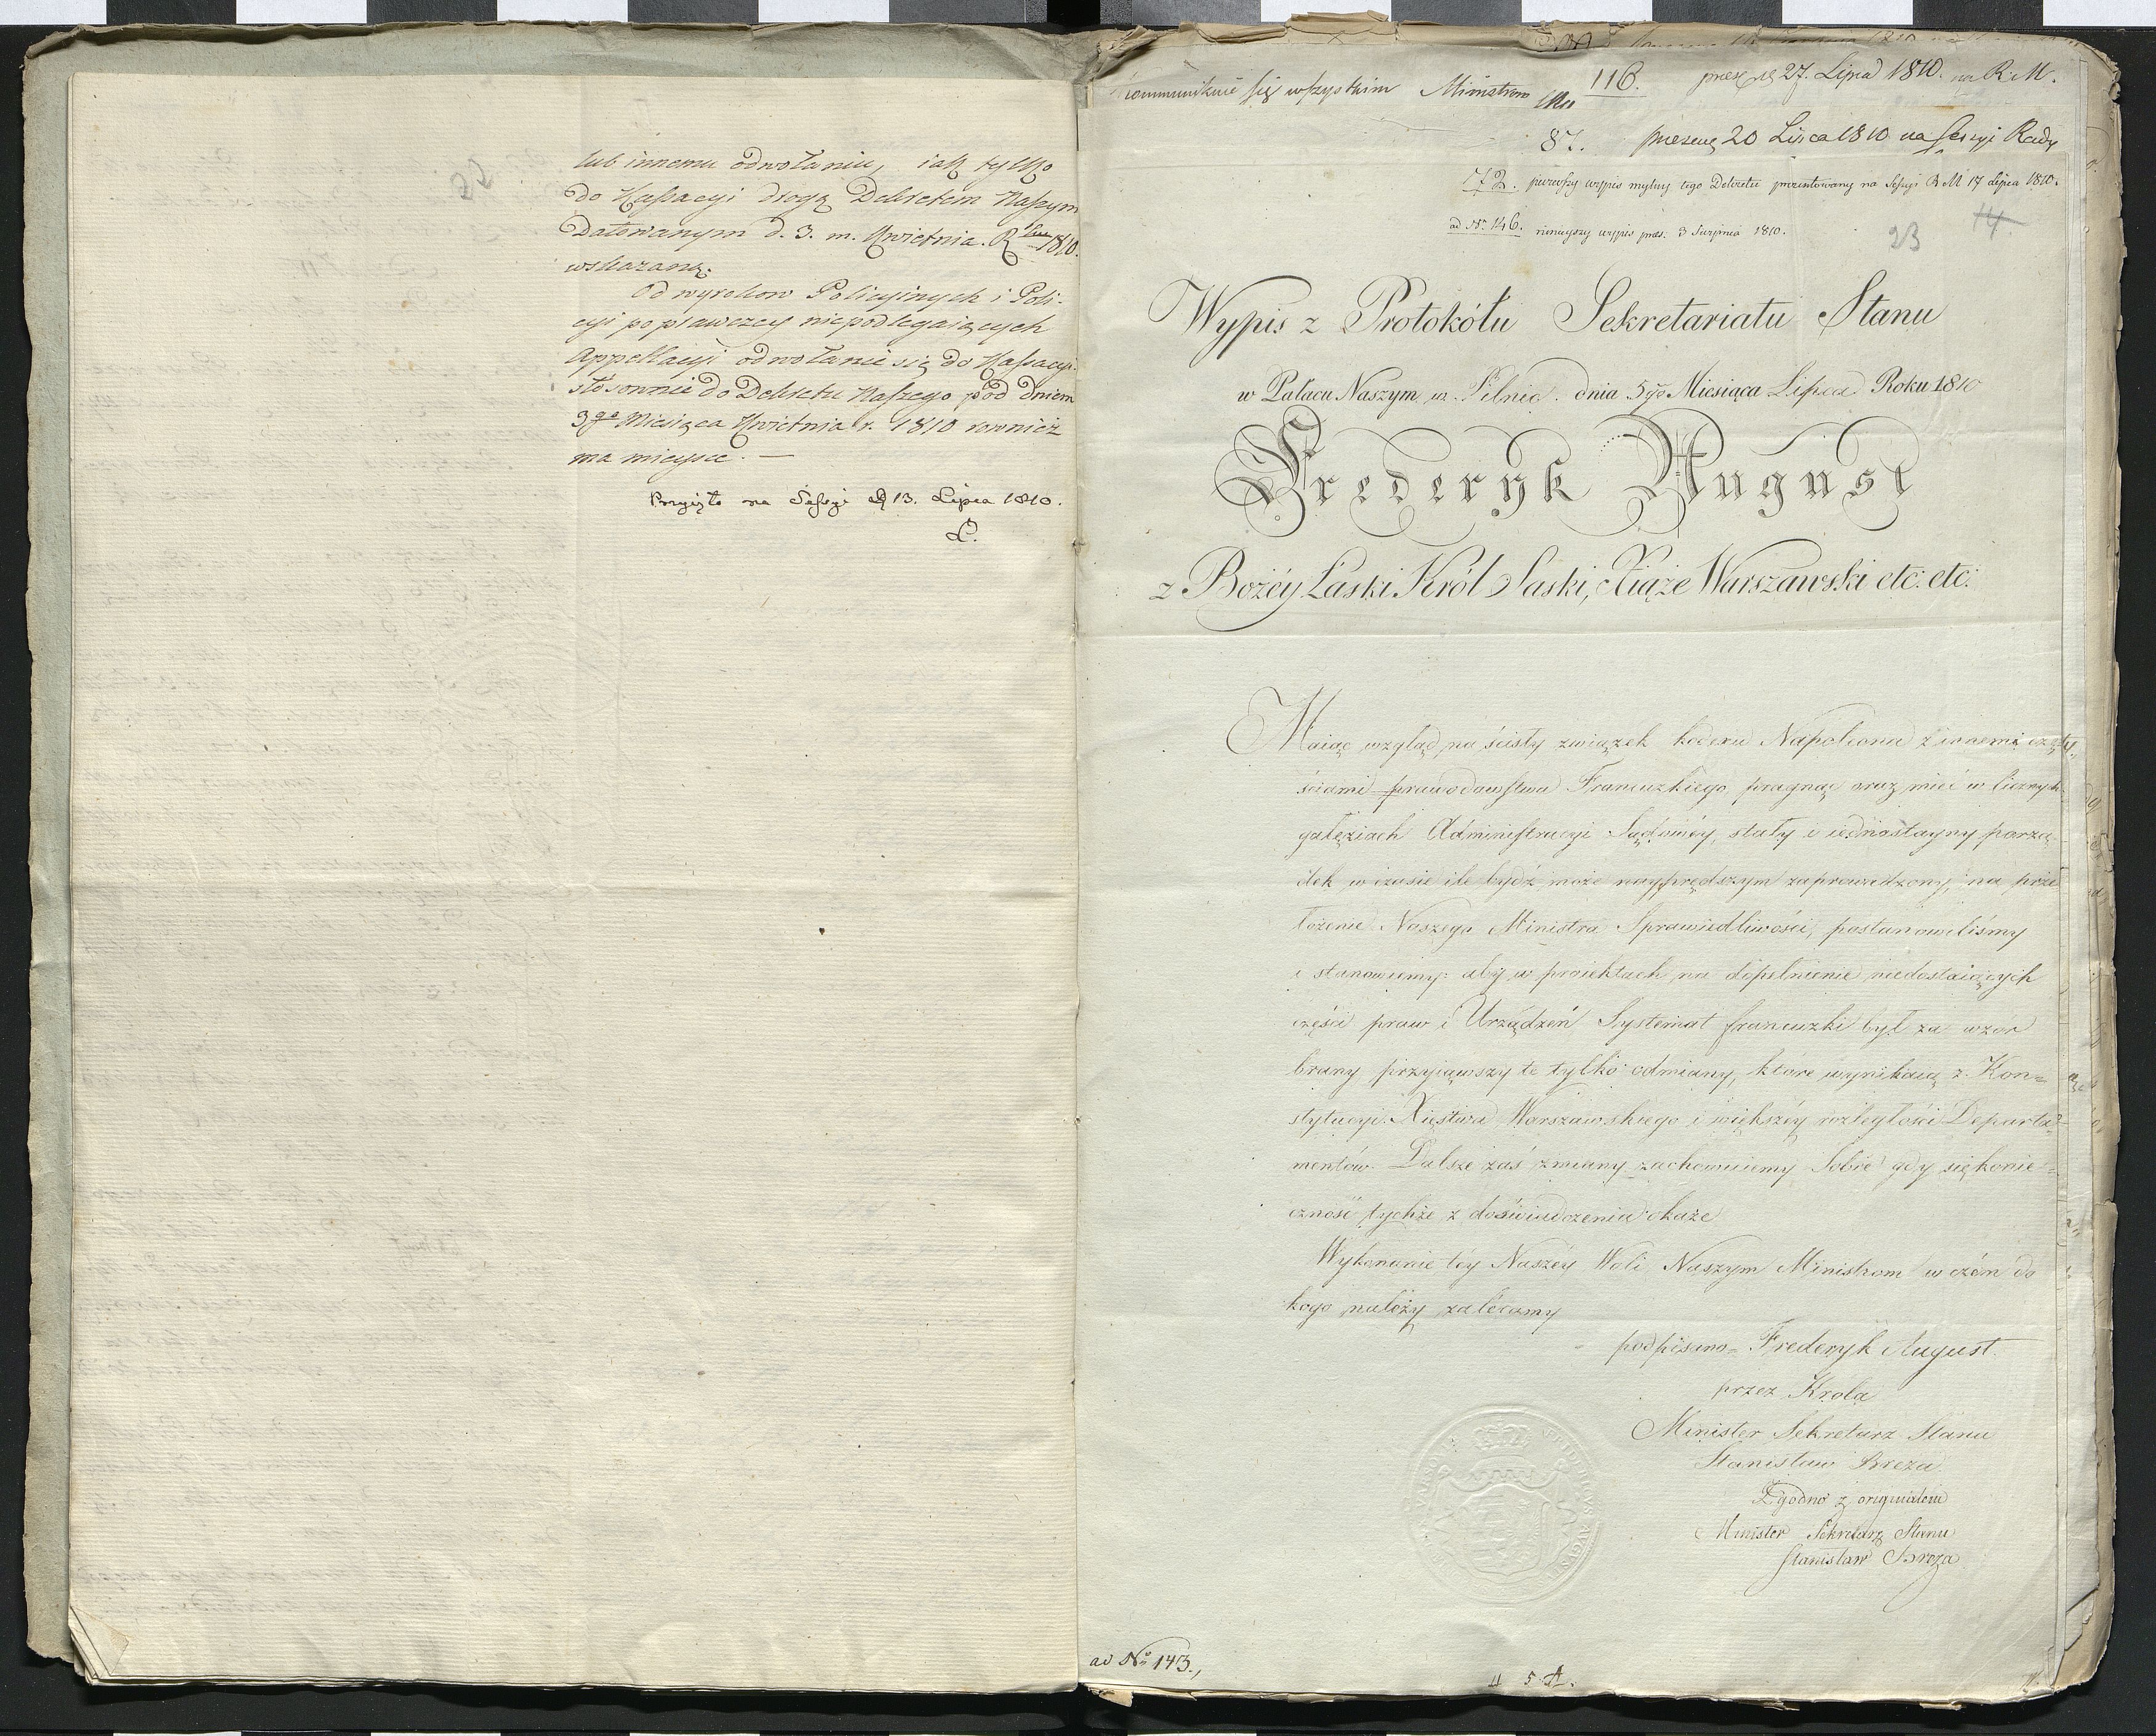 lub innemu odwołaniu, iak tylko
do Kassacyi drogą Dekretem Naszym
Datowanym d. 3. m. Kwietnia. R. 1810.
wskazaną.
Od wyrokow Policyinych i Poli-
cyi poprawczey niepodlegaiących
Appellacyi odwołanie się do Kassacyi
stosownie do Dekretu Naszego pod dniem
3go Miesiąca Kwietnia r. 1810 rownież
ma mieysce. —
Przyięto na Sessyi d 13. Lipca 1810.
Ł.
kommunikuie się wszystkim Ministrom
116. prez. d 27. Lipca 1810. na R. M.
87. prezent. 20 Lipca 1810 na Sessyi Rady
72. pierwszy wypis mylny tego Dekretu prezentowany na Sessyi R M 17 Lipca 1810.
ad Nr. 146. ninieyszy wypis prez. 3 Sierpnia 1810.
14.
23
Wypis z Protokółu Sekretariatu Stanu
w Pałacu Naszym w Pilnic. dnia 5go Miesiąca Lipca Roku 1810
Frederyk August
z Bożéy Łaski Król Saski, Xiąże Warszawski etc: etc:
Maiąc wzgląd na ścisły związek kodexu Napoleona z innemi czę-
ściami prawodawstwa Francuzkiego, pragnąc oraz mieć w licznych
gałęziach Administracyi Sądowéy, stały i iednostayny porzą-
dek w czasie ile bydź może nayprędszym zaprowadzony, na prze
łożenie Naszego Ministra Sprawiedliwości, postanowiliśmy
i stanowiemy: aby w proiektach na dopełnienie niedostaiących
części praw i Urządzeń Systemat francuzki był za wzor
brany przyiąwszy te tylko odmiany, które wynikaią z Kon=
stytucyi Xięstwa Warszawskiego i większéy rozległości Departa=
mentów. Dalsze zaś zmiany zachowuiemy Sobie gdy się konie=
czność tychże z doświadczenia okaże
Wykonanie téy Naszéy Woli Naszym Ministrom w czém do
kogo należy zalécamy
podpisano= Frederyk August.
przez Krola
Minister Sekretarz Stanu
Stanisław Breza
Zgodno z oryginałem
Minister Sekretarz Stanu
Stanisław Breza
ad No 143.,